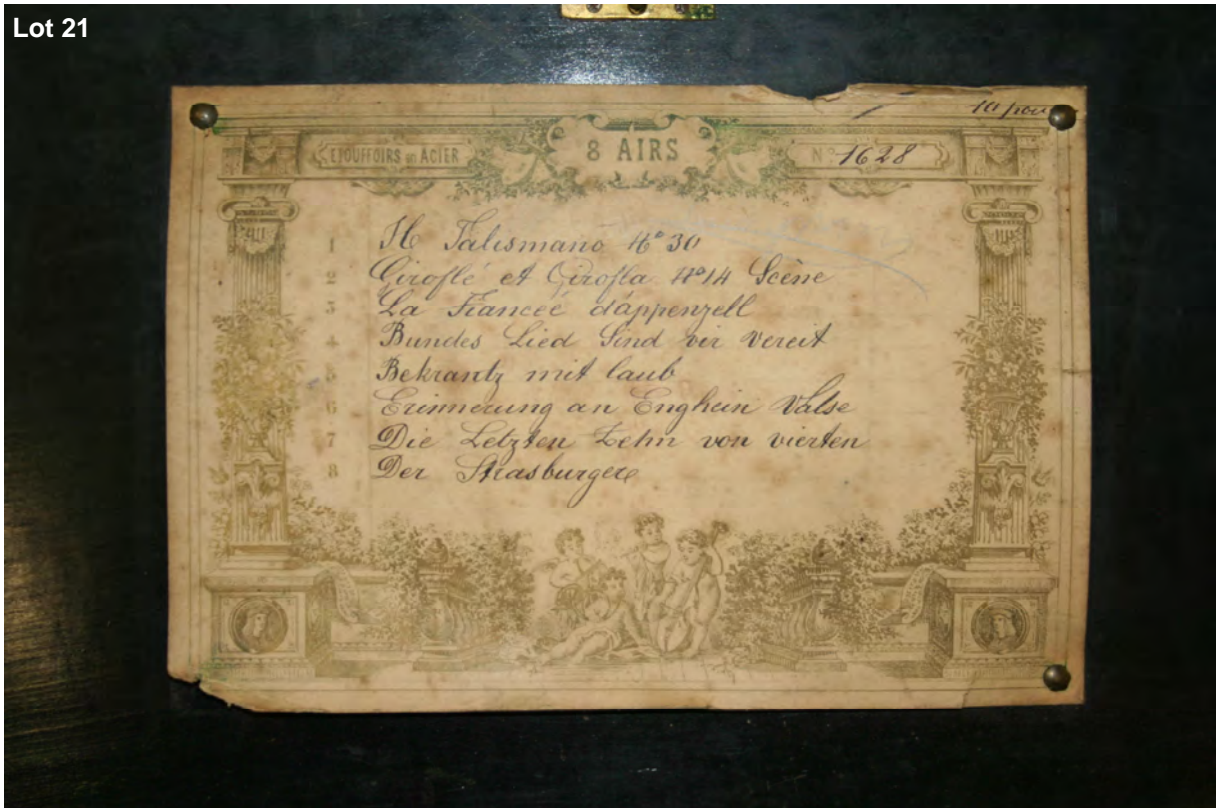 Lot 21
10 pou
ETOUFFOIRS en ACIER
8 AIRS
No 1628
1 Il Talismano No 30
2 Giroflé et Girofla No 14 Scène
3 La Fiancée d'appenzell
4 Bundes Lied Sind vir vereit
5 Bekrantz mit laub
6 Erinnerung an Enghein Valse
7 Die Letzten Zehn von vierten
8 Der Strasburger